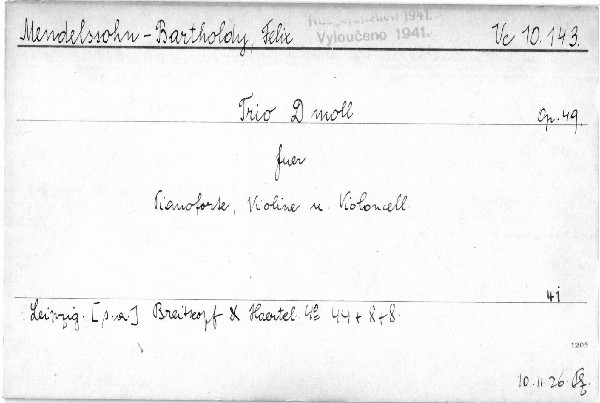 Mendelssohn-Bartholdy, Felix Vc 10.143.
1941.
Vyloučeno 1941.
Trio D moll Op. 49.
fuer
Pianoforte, Violine u. Violoncell.
4i
Leipzig. [s.a.] Breitkopf & Haertel. 4º 44+8+8.
1205
10.II.26